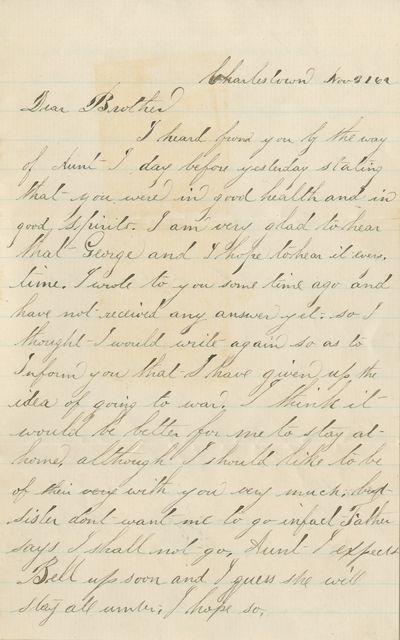 Charlestown Nov 21 62
Dear Brother
I heard from you by the way
of Aunt I day before yesterday stating
that you were in good health and in
good spirits. I am very glad to hear
that George and I hope to hear it every
time. I wrote to you some time ago and
have not received any answer yet: so I
thought I would write again so as to
Inform you that I have given up the
idea of going to war, I think it
would be better for me to stay at
home, although I should like to be
of with you very much, but
sister dont want me to go infact Father
says I shall not go, Aunt I expects
Bell up soon and I guess she will
stay all I hope so,